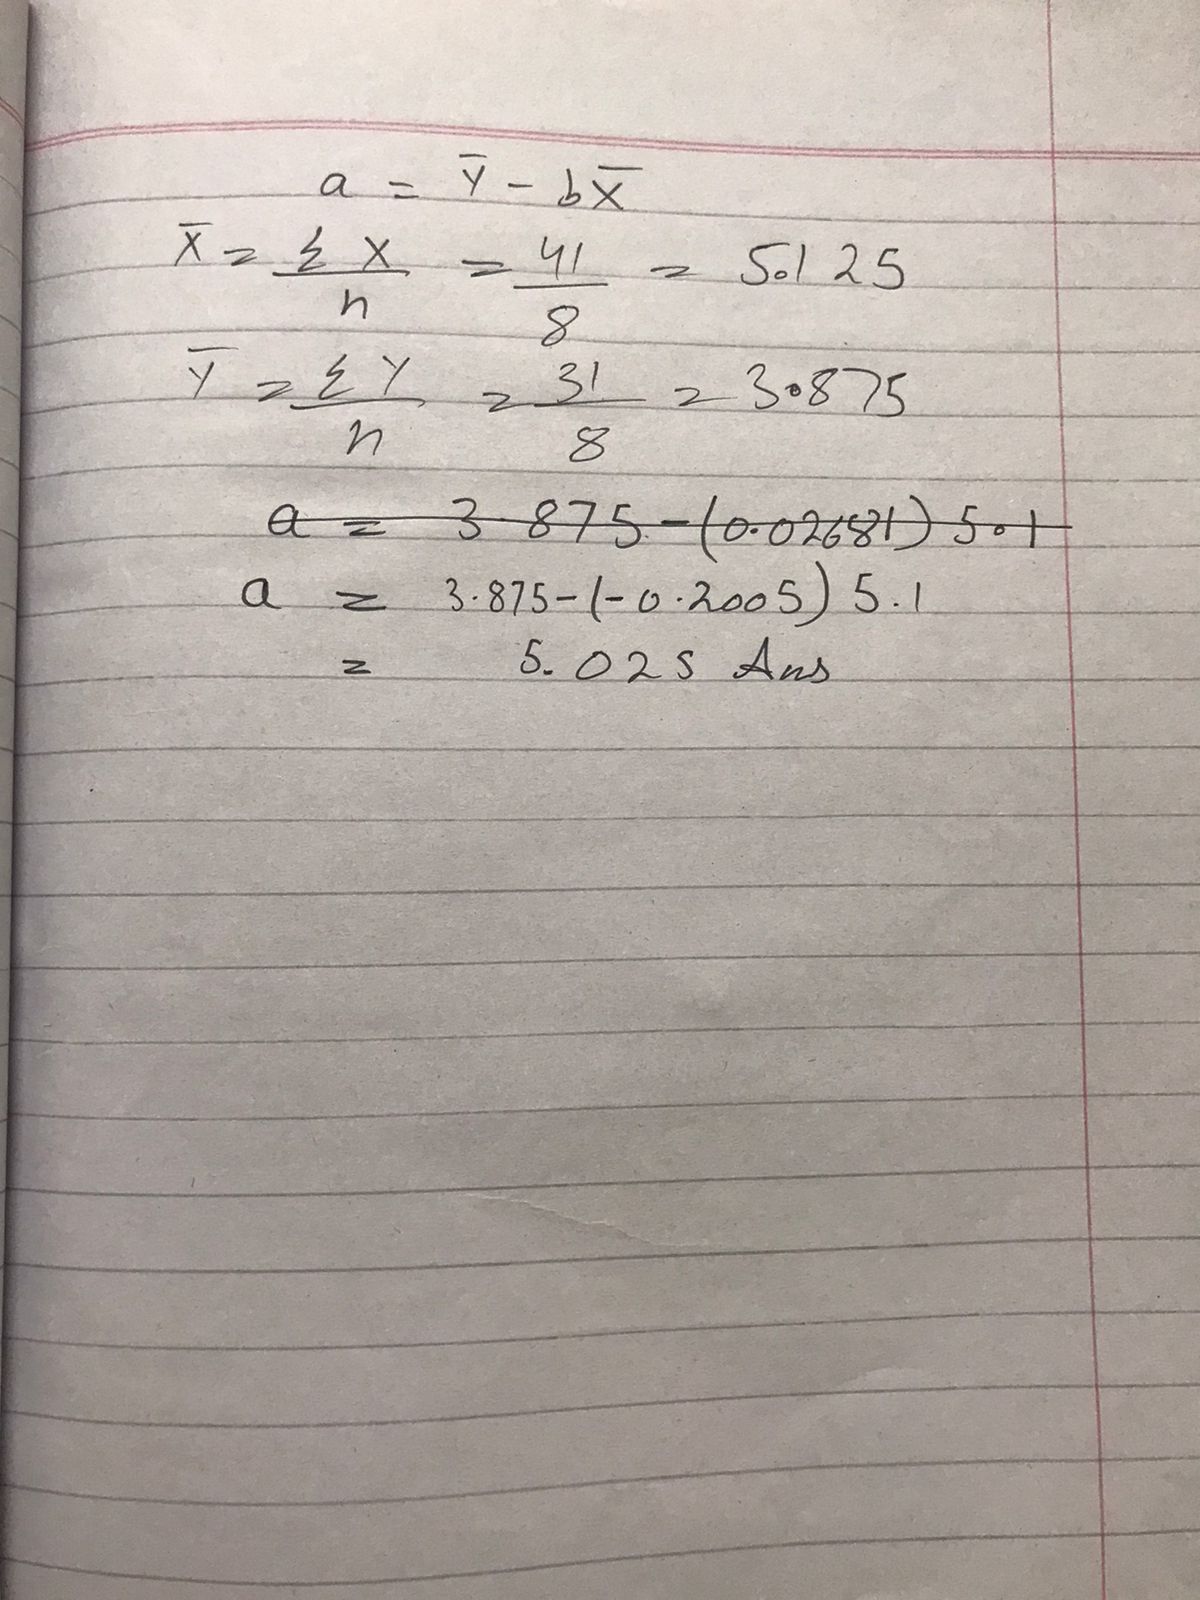 a = Y̅ - bX̅
X̅ = ΣX/n = 41/8 = 5.125
Y̅ = ΣY/n = 31/8 = 3.875
a = 3.875 - (0.02681) 5.1
a = 3.875 - (-0.2005) 5.1
= 5.025 Ans